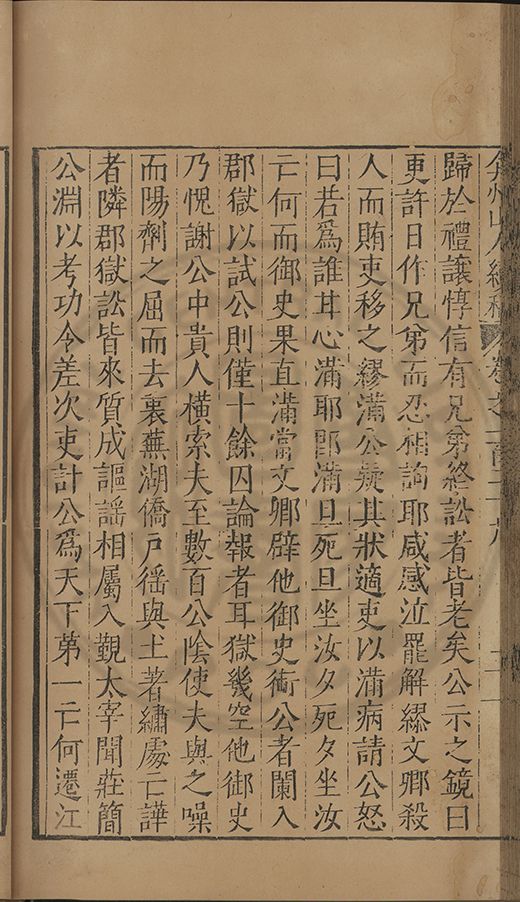 弇州山人續稿 卷之一百二十九
歸於禮讓惇信有兄弟終訟者皆老矣公示之鏡曰
更許日作兄弟而忍相訽耶咸感泣罷解繆文卿殺
人而賄吏移之繆滿公疑其狀適吏以滿病請公怒
曰若爲誰耳心滿耶郡滿旦死旦坐汝夕死夕坐汝
亡何而御史果直滿當文卿辟他御史銜公者闌入
郡獄以試公則僅十餘囚論報者耳獄幾空他御史
乃愧謝公中貴人橫索夫至數百公陰使夫與之噪
而陽劑之屈而去裏蕪湖僑戶徭與土著繡處亡譁
者隣郡獄訟皆來質成謳謡相屬入覲太宰聞莊簡
公淵以考功令差次吏計公爲天下第一亡何遷江